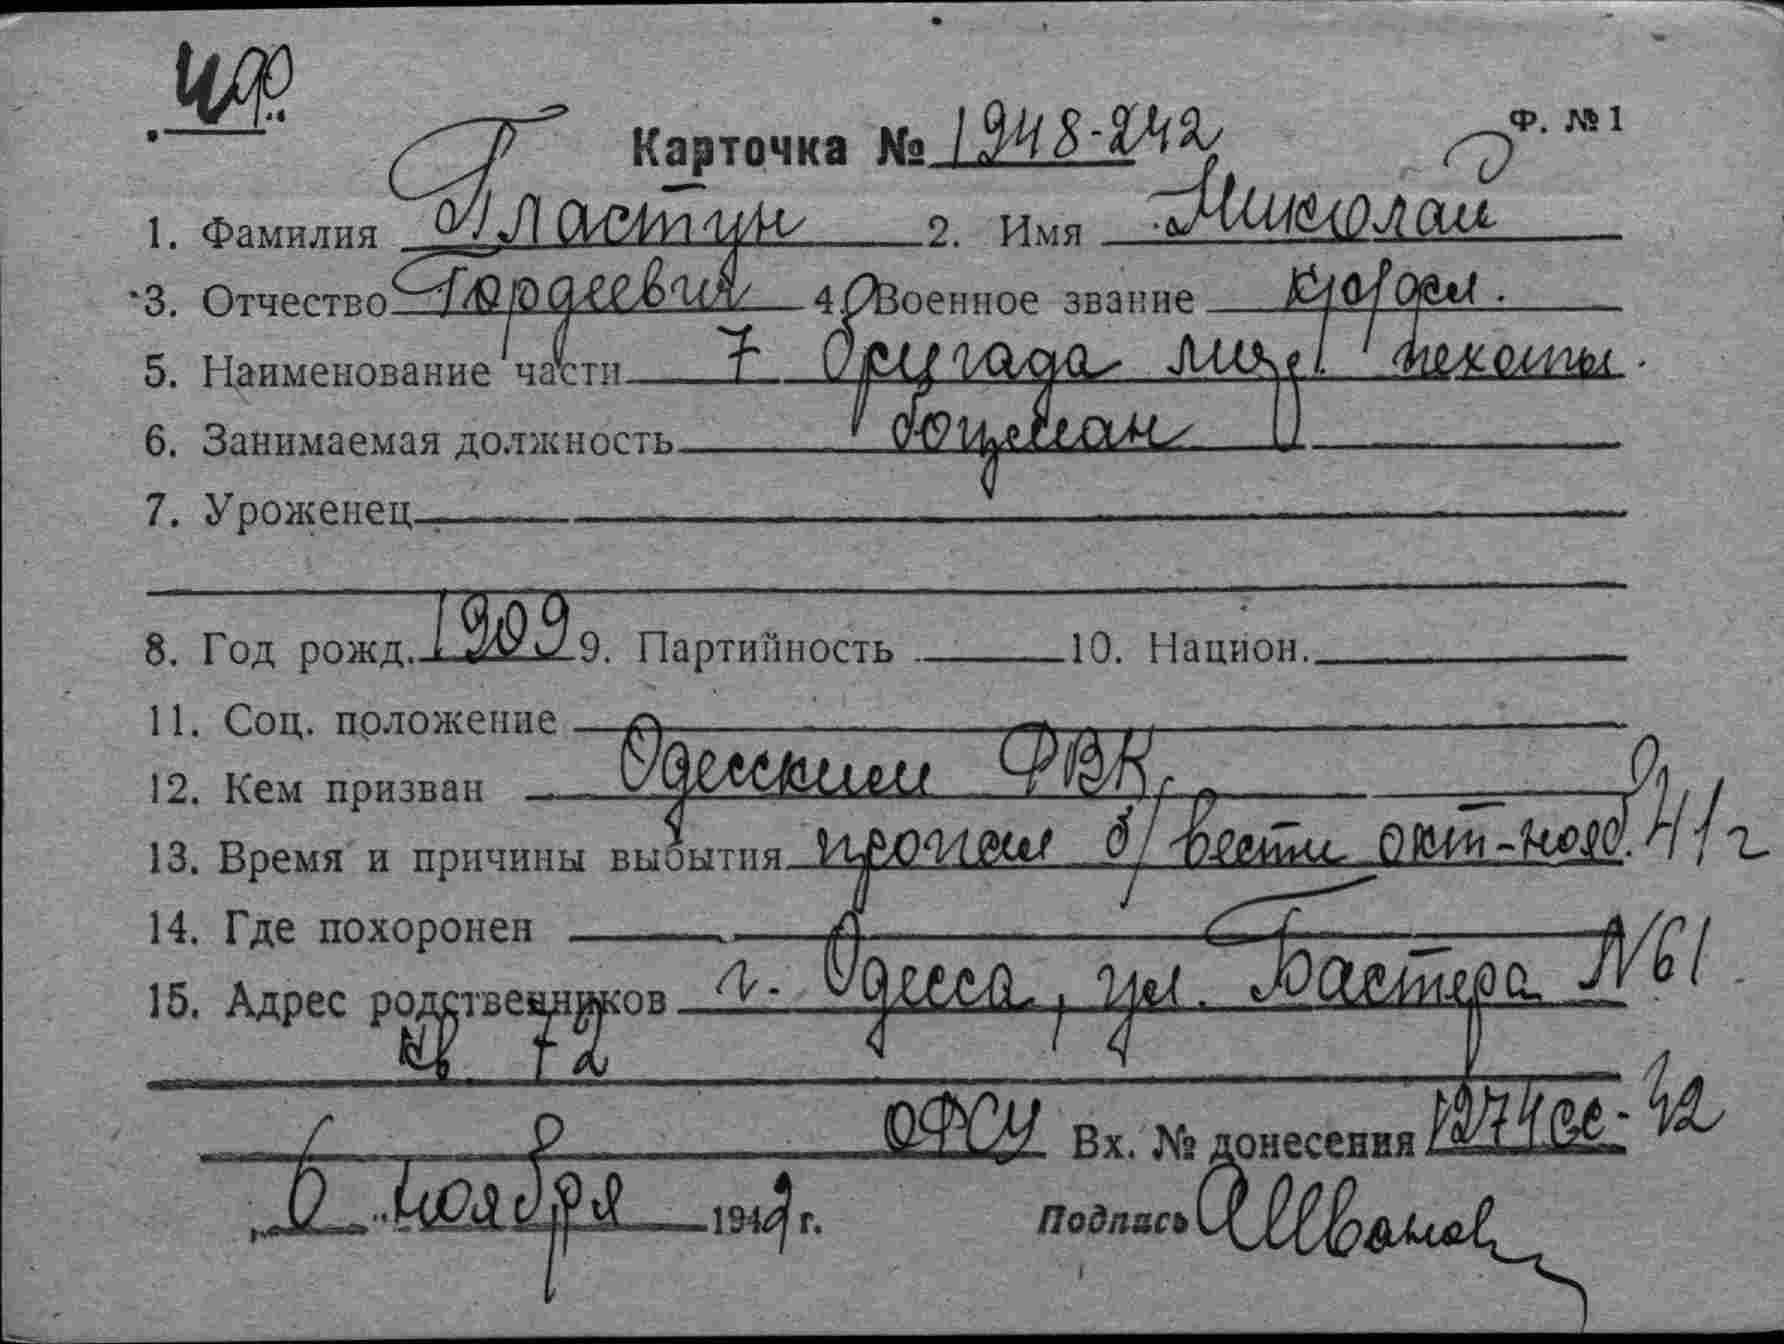 Карточка № 1948-242 Ф. № 1
1. Фамилия Пластун 2. Имя Николай
3. Отчество Гордеевич 4. Военное звание кр/фл.
5. Наименование части 7 бригада мор. пехоты.
6. Занимаемая должность боцман
7. Уроженец
8. Год рожд. 1909 9. Партийность 10. Национ.
11. Соц. положение
12. Кем призван Одесским ФВК
13. Время и причины выбытия пропал б/вести окт-нояб. 41 г
14. Где похоронен
15. Адрес родственников г. Одесса, ул. Пастера №61
кв 72
ОФСУ Вх. № донесения 1274сс-42
6 ноября 1942 г. Подпись